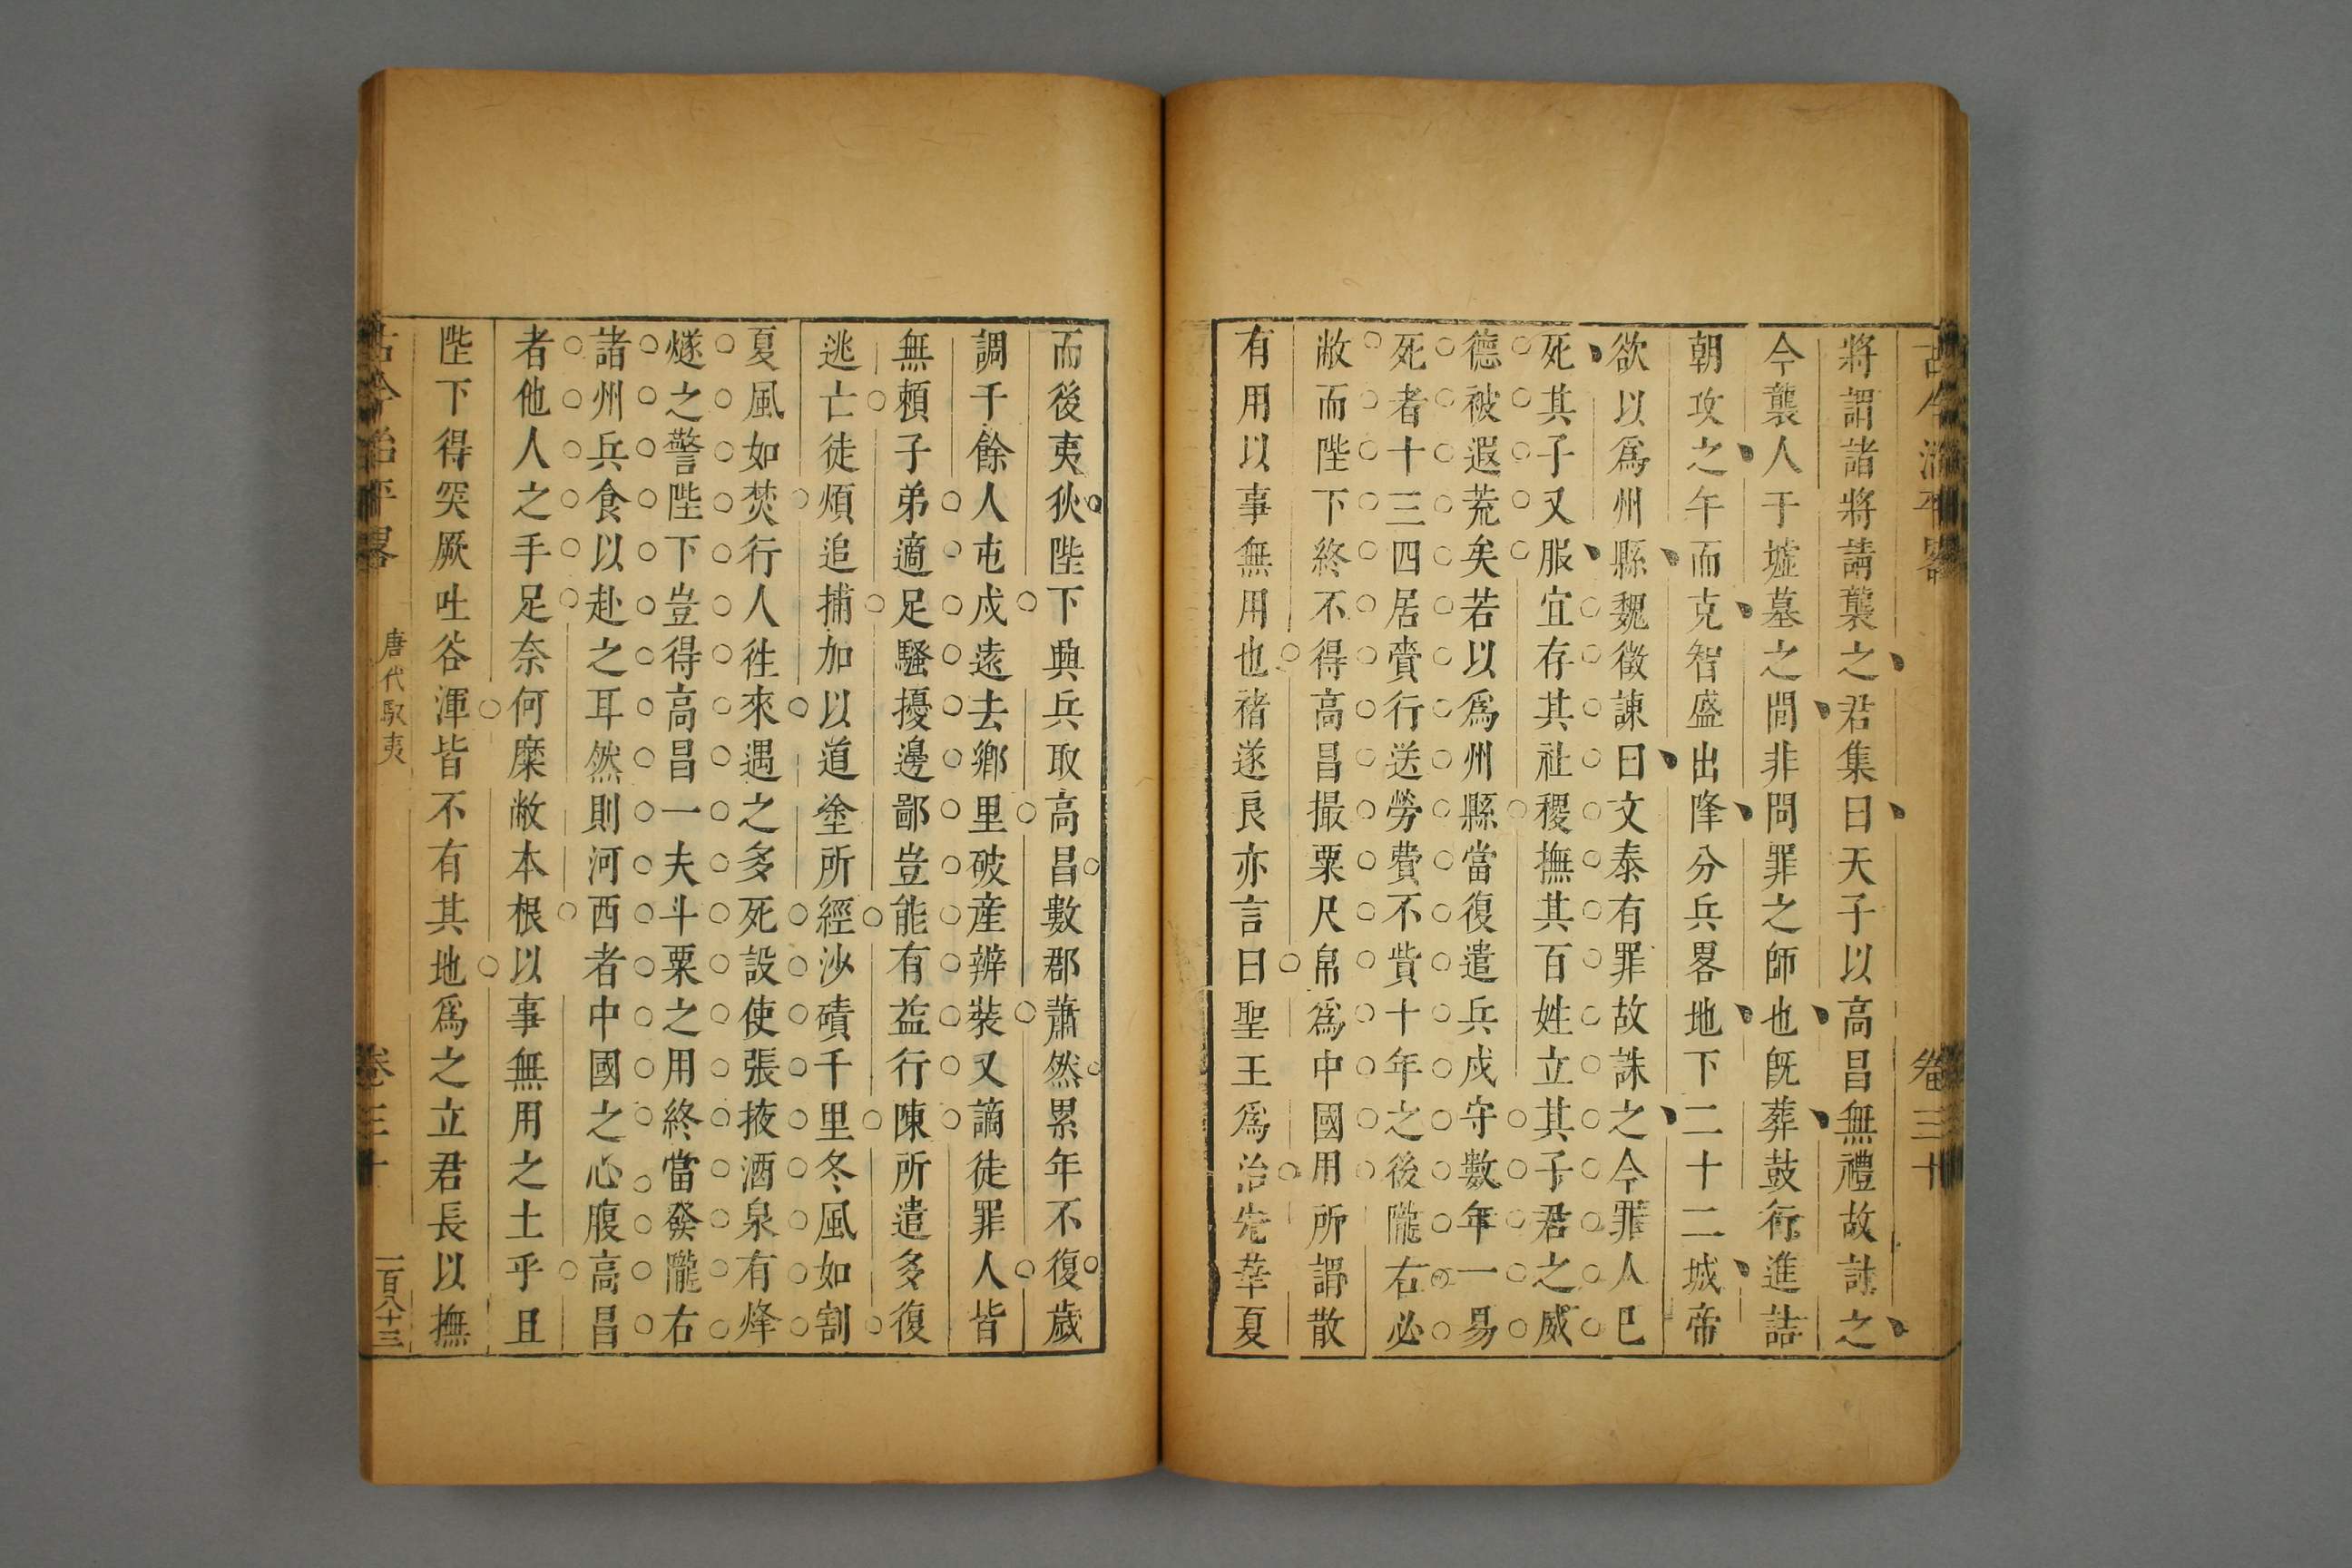 古今治平畧 卷三十
將謂諸將請襲之君集曰天子以高昌無禮故討之
今襲人于墟墓之間非問罪之師也旣葬鼓行進詰
朝攻之午而克智盛出降分兵畧地下二十二城帝
欲以爲州縣魏徵諫曰文泰有罪故誅之今罪人已
死其子又服宜存其社稷撫其百姓立其子君之威
德被遐荒矣若以爲州縣當復遣兵戍守數年一易
死者十三四居賫行送勞費不貲十年之後隴右必
敝而陛下終不得高昌撮粟尺帛爲中國用所謂散
有用以事無用也褚遂良亦言曰聖王爲治先華夏
而後夷狄陛下興兵取高昌數郡蕭然累年不復歲
調千餘人屯戍遠去鄉里破産辨裝又謫徒罪人皆
無賴子弟適足騷擾邊鄙豈能有益行陳所遣多復
逃亡徒煩追捕加以道塗所經沙磧千里冬風如割
夏風如焚行人徃來遇之多死設使張掖酒泉有烽
燧之警陛下豈得高昌一夫斗粟之用終當發隴右
諸州兵食以赴之耳然則河西者中國之心腹高昌
者他人之手足奈何糜敝本根以事無用之土乎且
陛下得突厥吐谷渾皆不有其地爲之立君長以撫
古今治平畧 唐代馭夷 卷三十 一百八十三